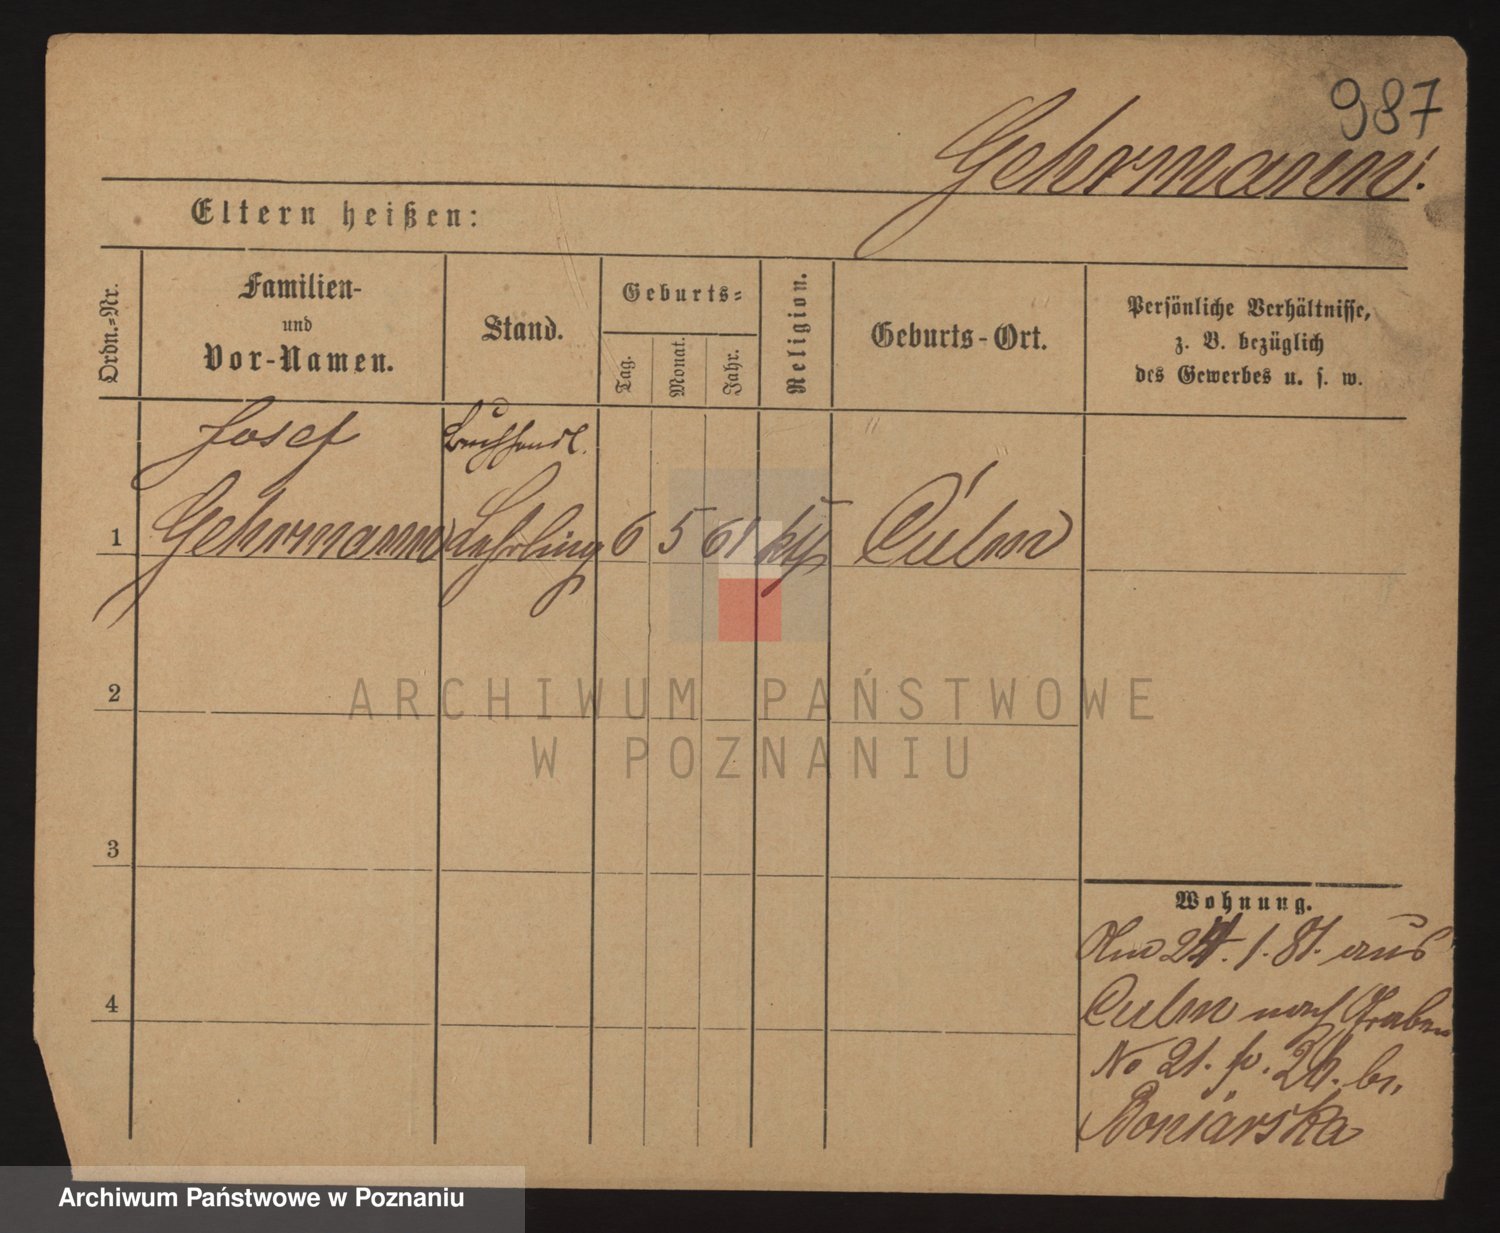 987
Gehrmann.
Eltern heißen:
Ordn.=Nr.
Familien-
und
Vor-Namen.
Stand.
Geburts=
Tag.
Monat.
Jahr.
Religion.
Geburts-Ort.
Persönliche Verhältnisse,
z. B. bezüglich
des Gewerbes u. s. w.
Josef Buchhandl.
1 Gehrmann Lehrling 6 5 61 kth Culm
2
3
4
ARCHIWUM PAŃSTWOWE
W POZNANIU
Wohnung.
Am 24. 1. 81. aus
Culm nach Graben
No 21. fr. 24. bei
Archiwum Państwowe w Poznaniu